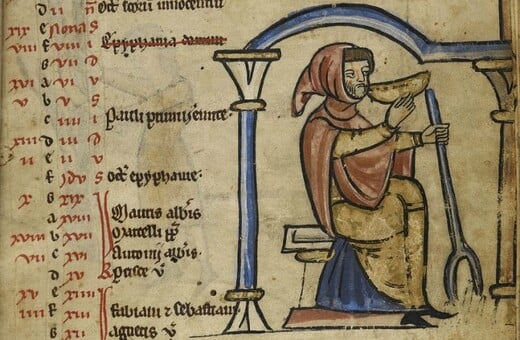 d ii n Oct scorū innocentiū
xix e Nonas
viii f viii i Epyphania domini
g vii d
xvi a vi v
v b v s
c iiii i Pauli primi
xiii d iii d
ii e ii v
f Idus s Oct epyphanie.
x g xix
a xviii Mauri abbis.
xviii b xvii Marcelli pp
vii c xvi Antonij abbis.
d xv Prisce v
xv e xiiii
iiii f xiii Fabiani ⁊ sebastiani
g xii Agnetis v